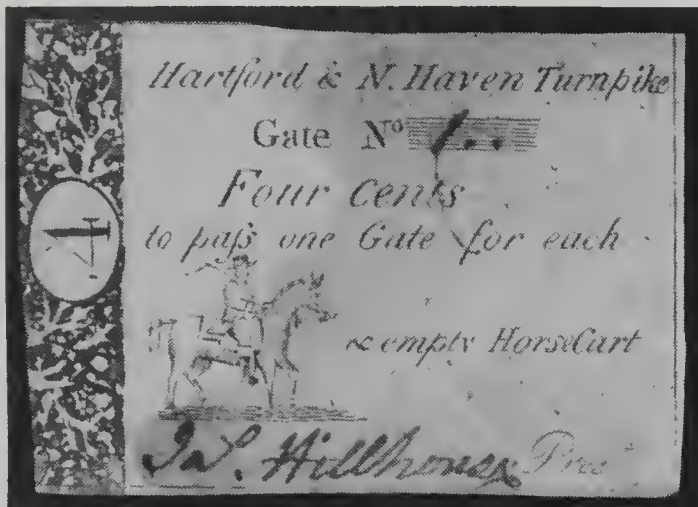 Hartford & N. Haven Turnpike
Gate Nº 1..
Four Cents
4
to paſs one Gate for each
& empty HorseCart
Jaˢ. Hillhouse Presᵗ